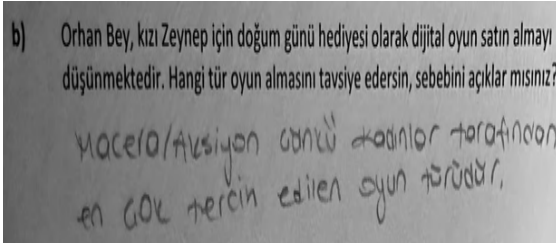 b) Orhan Bey, kızı Zeynep için doğum günü hediyesi olarak dijital oyun satın almayı
düşünmektedir. Hangi tür oyun almasını tavsiye edersin, sebebini açıklar mısınız?
Macera/Aksiyon çünkü kadınlar tarafından
en çok tercih edilen oyun türüdür.